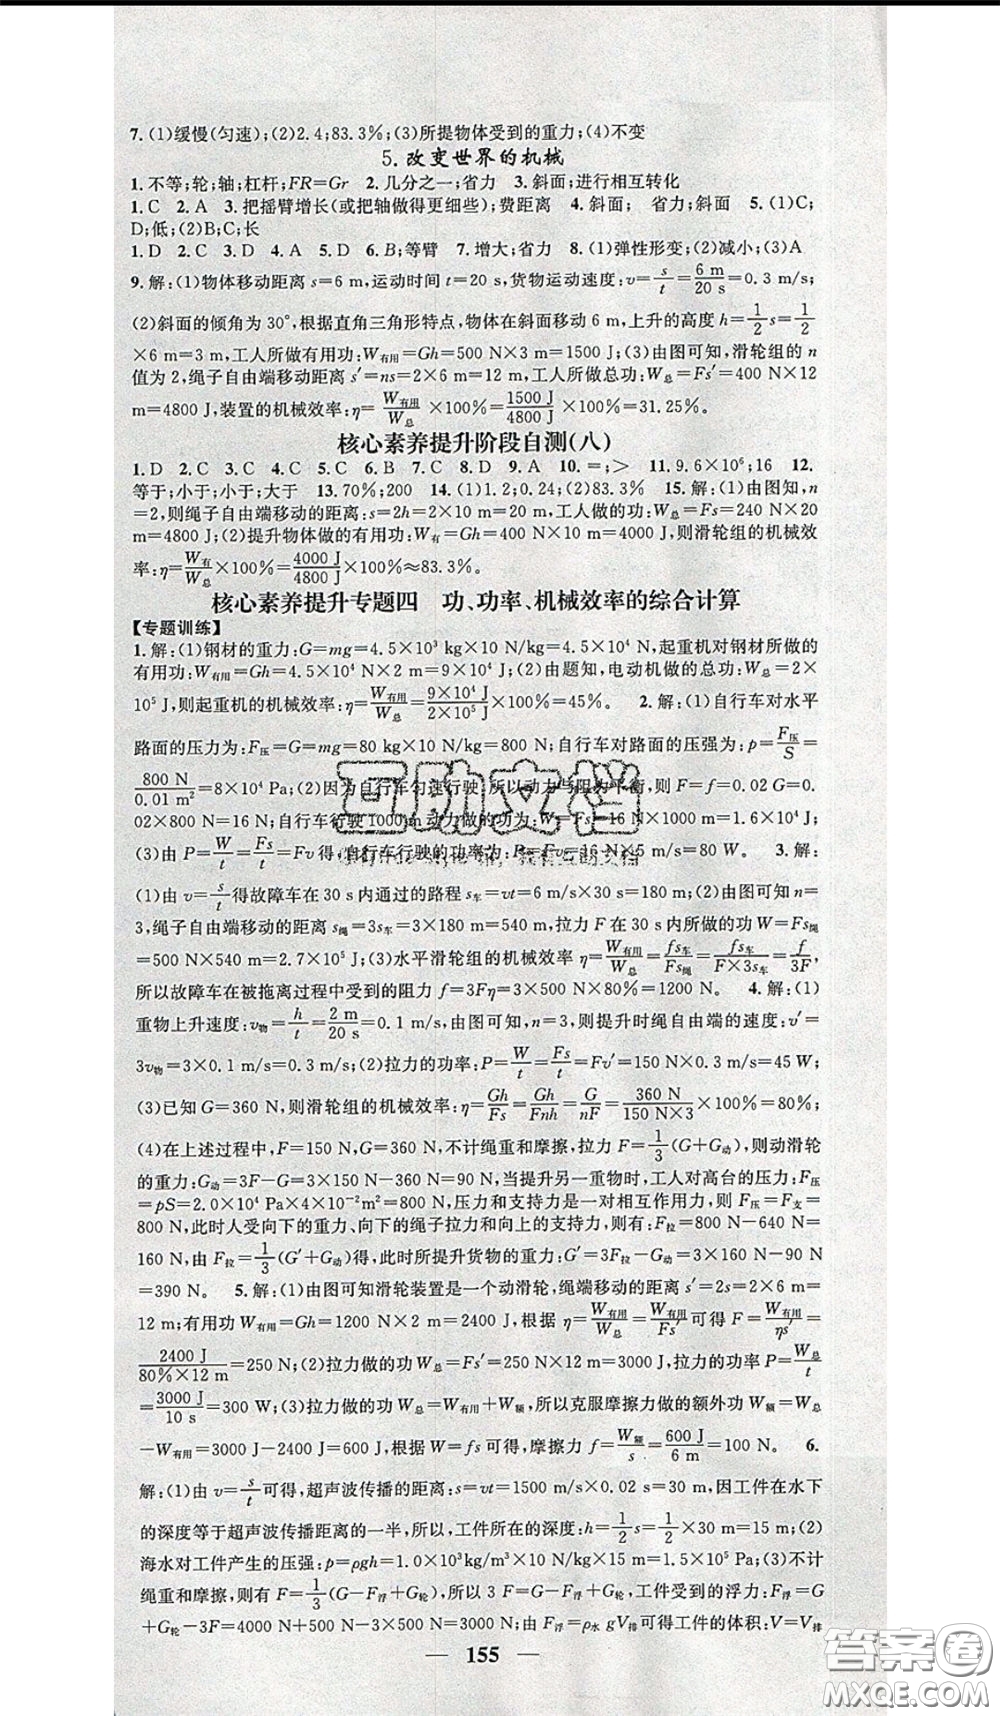 7. (1)缓慢(匀速);(2)2.4;83.3%;(3)所提物体受到的重力;(4)不变
5.改变世界的机械
1. 不等;轮;轴;杠杆;FR=Gr 2. 几分之一;省力 3. 斜面;进行相互转化
1. C 2. A 3. 把摇臂增长(或把轴做得更细些);费距离 4. 斜面; 省力;斜面 5. (1)C;
D;低;(2)B;C;长
1. D 2. C 3. D 4. A 5. D 6. B;等臂 7. 增大;省力 8. (1)弹性形变;(2)减小;(3)A
9. 解:(1)物体移动距离 s=6 m,运动时间 t=20 s,货物运动速度:v=s/t=6 m/20 s=0.3 m/s;
(2)斜面的倾角为 30°,根据直角三角形特点,物体在斜面移动 6 m,上升的高度 h=1/2 s=1/2
×6 m=3 m,工人所做有用功:W有用=Gh=500 N×3 m=1500 J;(3)由图可知,滑轮组的 n
值为 2,绳子自由端移动距离 s′=ns=2×6 m=12 m,工人所做总功:W总=Fs′=400 N×12
m=4800 J,装置的机械效率:η=W有用/W总×100%=1500 J/4800 J×100%=31.25%。
核心素养提升阶段自测(八)
1. D 2. C 3. C 4. C 5. C 6. B 7. C 8. D 9. A 10. =;> 11. 9.6×10⁶;16 12.
等于;小于;小于;大于 13. 70%;200 14. (1)1.2;0.24;(2)83.3% 15. 解:(1)由图知,n
=2,则绳子自由端移动的距离:s=2h=2×10 m=20 m,工人做的功:W总=Fs=240 N×20
m=4800 J;(2)提升物体做的有用功:W有=Gh=400 N×10 m=4000 J,则滑轮组的机械效
率:η=W有/W总×100%=4000 J/4800 J×100%≈83.3%。
核心素养提升专题四 功、功率、机械效率的综合计算
【专题训练】
1. 解:(1)钢材的重力:G=mg=4.5×10³ kg×10 N/kg=4.5×10⁴ N,起重机对钢材所做的
有用功:W有用=Gh=4.5×10⁴ N×2 m=9×10⁴ J;(2)由题知,电动机做的总功:W总=2×
10⁵ J,则起重机的机械效率:η=W有用/W总=9×10⁴ J/2×10⁵ J×100%=45%。 2. 解:(1)自行车对水平
路面的压力为:F压=G=mg=80 kg×10 N/kg=800 N;自行车对路面的压强为:p=F压/S=
800 N/0.01 m²=8×10⁴ Pa;(2)因为自行车匀速行驶,所以动力与阻力平衡,则 F=f=0.02 G=0.
02×800 N=16 N;自行车行驶1000 m动力做的功为:W=Fs=16 N×1000 m=1.6×10⁴ J;
(3)由 P=W/t=Fs/t=Fv 得,自行车行驶的功率为:P=Fv=16 N×5 m/s=80 W。 3. 解:
(1)由 v=s/t得故障车在 30 s 内通过的路程 s车=vt=6 m/s×30 s=180 m;(2)由图可知 n=
3,绳子自由端移动的距离 s绳=3s车=3×180 m=540 m,拉力 F 在 30 s 内所做的功 W=Fs绳
=500 N×540 m=2.7×10⁵ J;(3)水平滑轮组的机械效率 η=W有用/W总=fs车/Fs绳=fs车/F×3s车=f/3F,
所以故障车在被拖离过程中受到的阻力 f=3Fη=3×500 N×80%=1200 N。 4. 解:(1)
重物上升速度:v物=h/t=2 m/20 s=0.1 m/s,由图可知,n=3,则提升时绳自由端的速度:v′=
3v物=3×0.1 m/s=0.3 m/s;(2)拉力的功率:P=W/t=Fs/t=Fv′=150 N×0.3 m/s=45 W;
(3)已知 G=360 N,则滑轮组的机械效率:η=Gh/Fs=Gh/Fnh=G/nF=360 N/150 N×3×100%=80%;
(4)在上述过程中,F=150 N,G=360 N,不计绳重和摩擦,拉力 F=1/3(G+G动),则动滑轮
的重力:G动=3F-G=3×150 N-360 N=90 N,当提升另一重物时,工人对高台的压力:F压
=pS=2.0×10⁴ Pa×4×10⁻²m²=800 N,压力和支持力是一对相互作用力,则 F压=F支=
800 N,此时人受向下的重力、向下的绳子拉力和向上的支持力,则有:F拉=800 N-640 N=
160 N,由 F拉=1/3(G′+G动)得,此时所提升货物的重力:G′=3F拉-G动=3×160 N-90 N
=390 N。 5. 解:(1)由图可知滑轮装置是一个动滑轮,绳端移动的距离 s′=2s=2×6 m=
12 m;有用功 W有用=Gh=1200 N×2 m=2400 J,根据 η=W有用/W总=W有用/Fs′可得 F=W有用/ηs′=
2400 J/80%×12 m=250 N;(2)拉力做的功 W总=Fs′=250 N×12 m=3000 J,拉力的功率 P=W总/t
=3000 J/10 s=300 W;(3)拉力做的功 W总=W有用+W额,所以克服摩擦力做的额外功 W额=W总
-W有用=3000 J-2400 J=600 J,根据 W=fs 可得,摩擦力 f=W额/s=600 J/6 m=100 N。 6.
解:(1)由 v=s/t可得,超声波传播的距离:s=vt=1500 m/s×0.02 s=30 m,因工件在水下
的深度等于超声波传播距离的一半,所以,工件所在的深度:h=1/2 s=1/2×30 m=15 m;(2)
海水对工件产生的压强:p=ρgh=1.0×10³kg/m³×10 N/kg×15 m=1.5×10⁵ Pa;(3)不计
绳重和摩擦,则有 F=1/3(G-F浮+G轮),所以 3 F=G-F浮+G轮,工件受到的浮力:F浮=G
+G轮-3F=4000 N+500 N-3×500 N=3000 N;由 F浮=ρ水 gV排可得工件的体积:V=V排
— 155 —
互助文档
答案卷
MXQE.COM